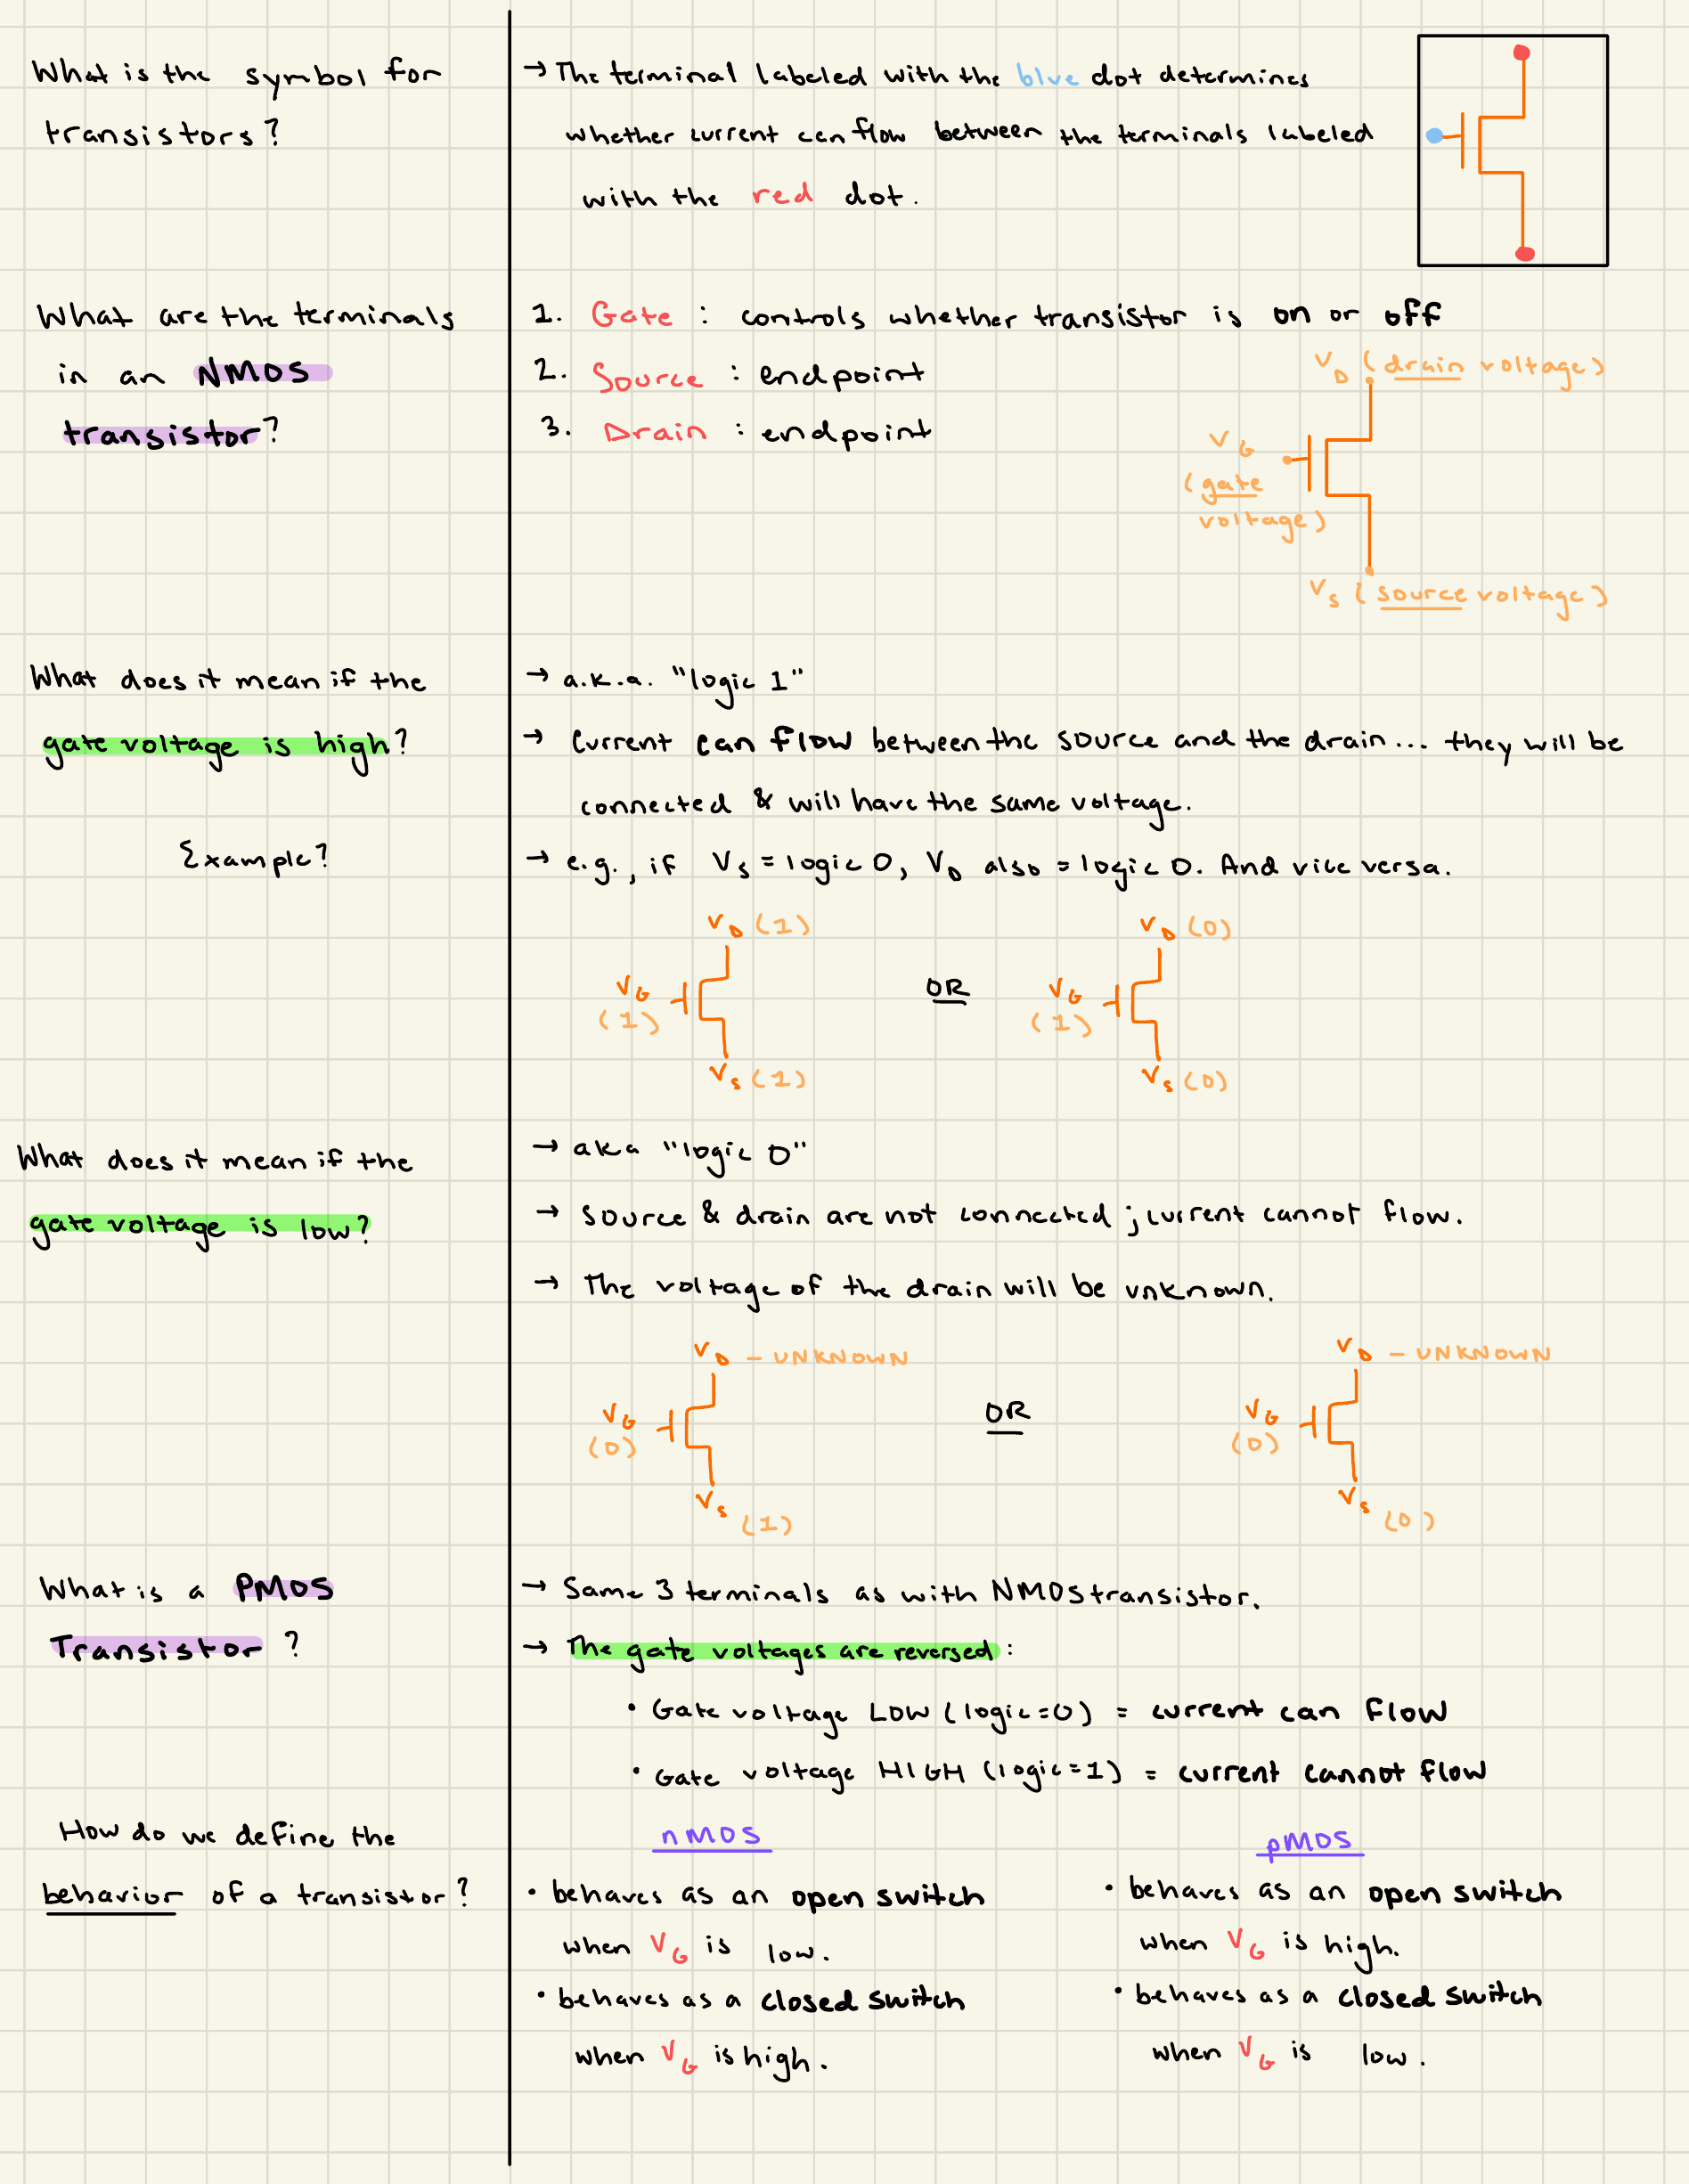 What is the symbol for
transistors?
→ The terminal labeled with the blue dot determines
whether current can flow between the terminals labeled
with the red dot.
What are the terminals
in an NMOS
transistor?
1. Gate : controls whether transistor is on or off
2. Source : endpoint
3. Drain : endpoint
VD (drain voltage)
VG
(gate
voltage)
Vs (source voltage)
What does it mean if the
gate voltage is high?
→ a.k.a. "logic 1"
→ Current can flow between the source and the drain... they will be
connected & will have the same voltage.
Example?
→ e.g., if Vs = logic 0, VD also = logic 0. And vice versa.
VD (1)
VG
(1)
Vs (1)
OR
VD (0)
VG
(1)
Vs (0)
What does it mean if the
gate voltage is low?
→ aka "logic 0"
→ Source & drain are not connected; current cannot flow.
→ The voltage of the drain will be unknown.
VD - UNKNOWN
VG
(0)
Vs (1)
OR
VD - UNKNOWN
VG
(0)
Vs (0)
What is a PMOS
Transistor?
→ Same 3 terminals as with NMOS transistor.
→ The gate voltages are reversed:
• Gate voltage LOW (logic=0) = current can flow
• Gate voltage HIGH (logic=1) = current cannot flow
How do we define the
behavior of a transistor?
nMOS
• behaves as an open switch
when VG is low.
• behaves as a closed switch
when VG is high.
pMOS
• behaves as an open switch
when VG is high.
• behaves as a closed switch
when VG is low.